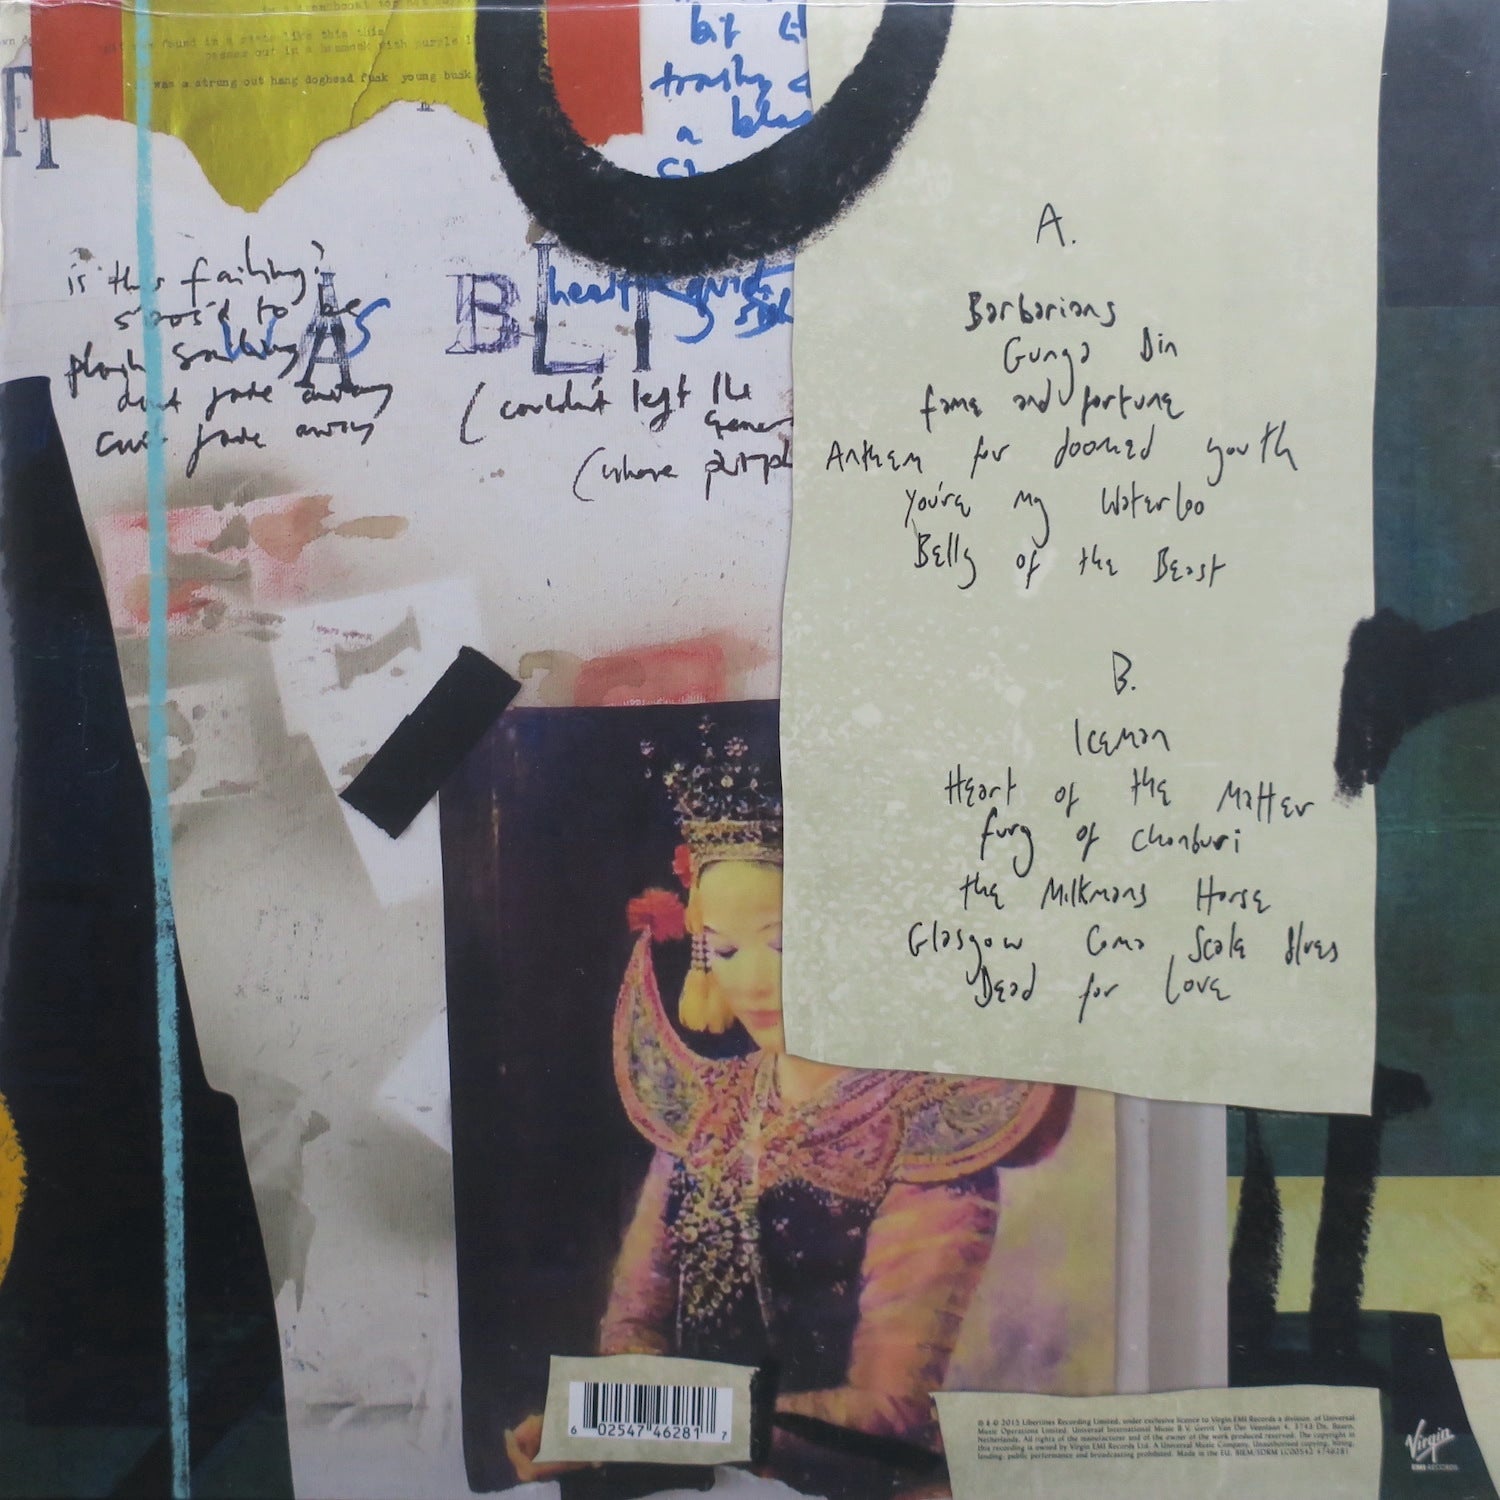 was found in a state like this this
passed out in a hammock with purple
was a strung out hang doghead funk young bunk
bit
trashy
a
is this failing?
s'pos'd to be
WAS BLI
heart
don't fade away
fade away
(couldn't left the
(where purple
A.
Barbarians
Gunga Din
fame and fortune
Anthem for doomed youth
You're my Waterloo
Belly of the Beast
B.
Iceman
Heart of the Matter
fury of Chonburi
the Milkmans Horse
Glasgow Coma Scale Blues
Dead for Love
6 02547 46281 7
℗ & © 2015 Libertines Recording Limited, under exclusive licence to Virgin EMI Records a division of Universal
Music Operations Limited. Universal International Music B.V. Gerrit Van Der Veenlaan 4, 3743 Dn, Baarn,
Netherlands. All rights of the manufacturer and of the owner of the work produced reserved. The copyright in
this recording is owned by Virgin EMI Records Ltd. A Universal Music Company. Unauthorised copying, hiring,
lending, public performance and broadcasting prohibited. Made in the EU. BIEM/SDRM LC00542 4746281
Virgin
EMI RECORDS